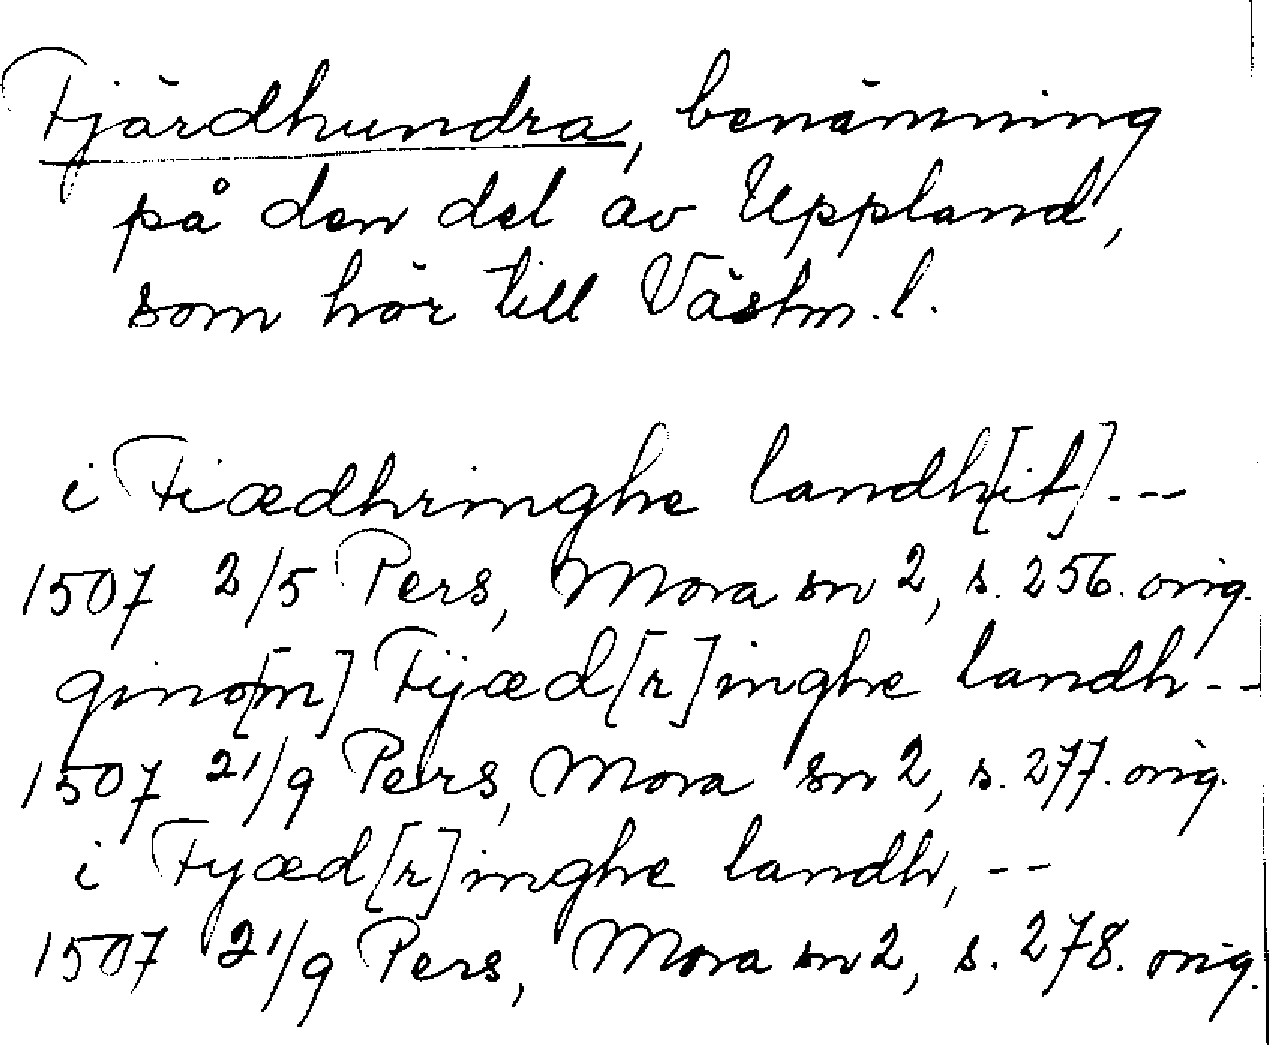 Fjärdhundra, benämning
på den del av Uppland,
som hör till Västm. l.
i Fiædhringhe landh[it] .--
1507 2/5 Pers, Mora sn 2, s. 256. orig.
gino[m] Fijæd[r]inghe landh--
1507 21/9 Pers, Mora sn 2, s. 277. orig.
i Fyæd[r]inghe landh, --
1507 21/9 Pers, Mora sn 2, s. 278. orig.